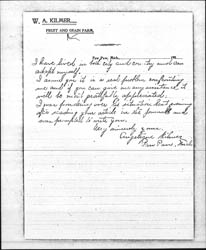 W. A. KILMER
FRUIT AND GRAIN FARM
I have lived in both city and country and can
adapt myself.
I assure you it is a real problem confronting
me and if you can give me any assistance, it
will be most gratefully appreciated.
I was pondering over his situation last evening
after reading your article in the Journal and
was prompted to write you.
Very sincerely yours,
Angeline Kilmer
Paw Paw, Mich.